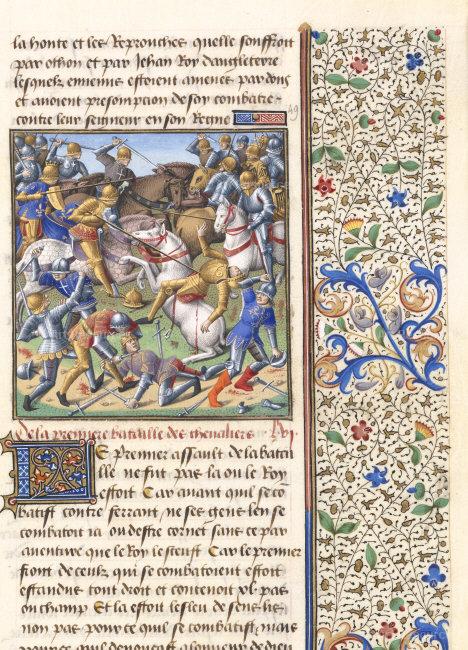 la honte et les Reprouches quelle souffroit
par othon et par Jehan Roy dangleterre
lesquelz ennemis estoient amenes par dons
et auoient presompcion de soy combatre
contre leur seigneur en son Regne
49
De la premiere bataille des cheualiers lvi
Le premier assault de la batai
lle ne fut pas la ou le Roy
estoit Car auant quil se co
batist contre ferrant ne ses gens len se
combatoit ia ou destre cornet sans ce par
auenture que le Roy le sceust Car le premier
front de ceulz qui se combatoient estoit
estandus tout droit et contenoit xl pas
ou champ Et la estoit
non pas pour ce quil se combatist mais